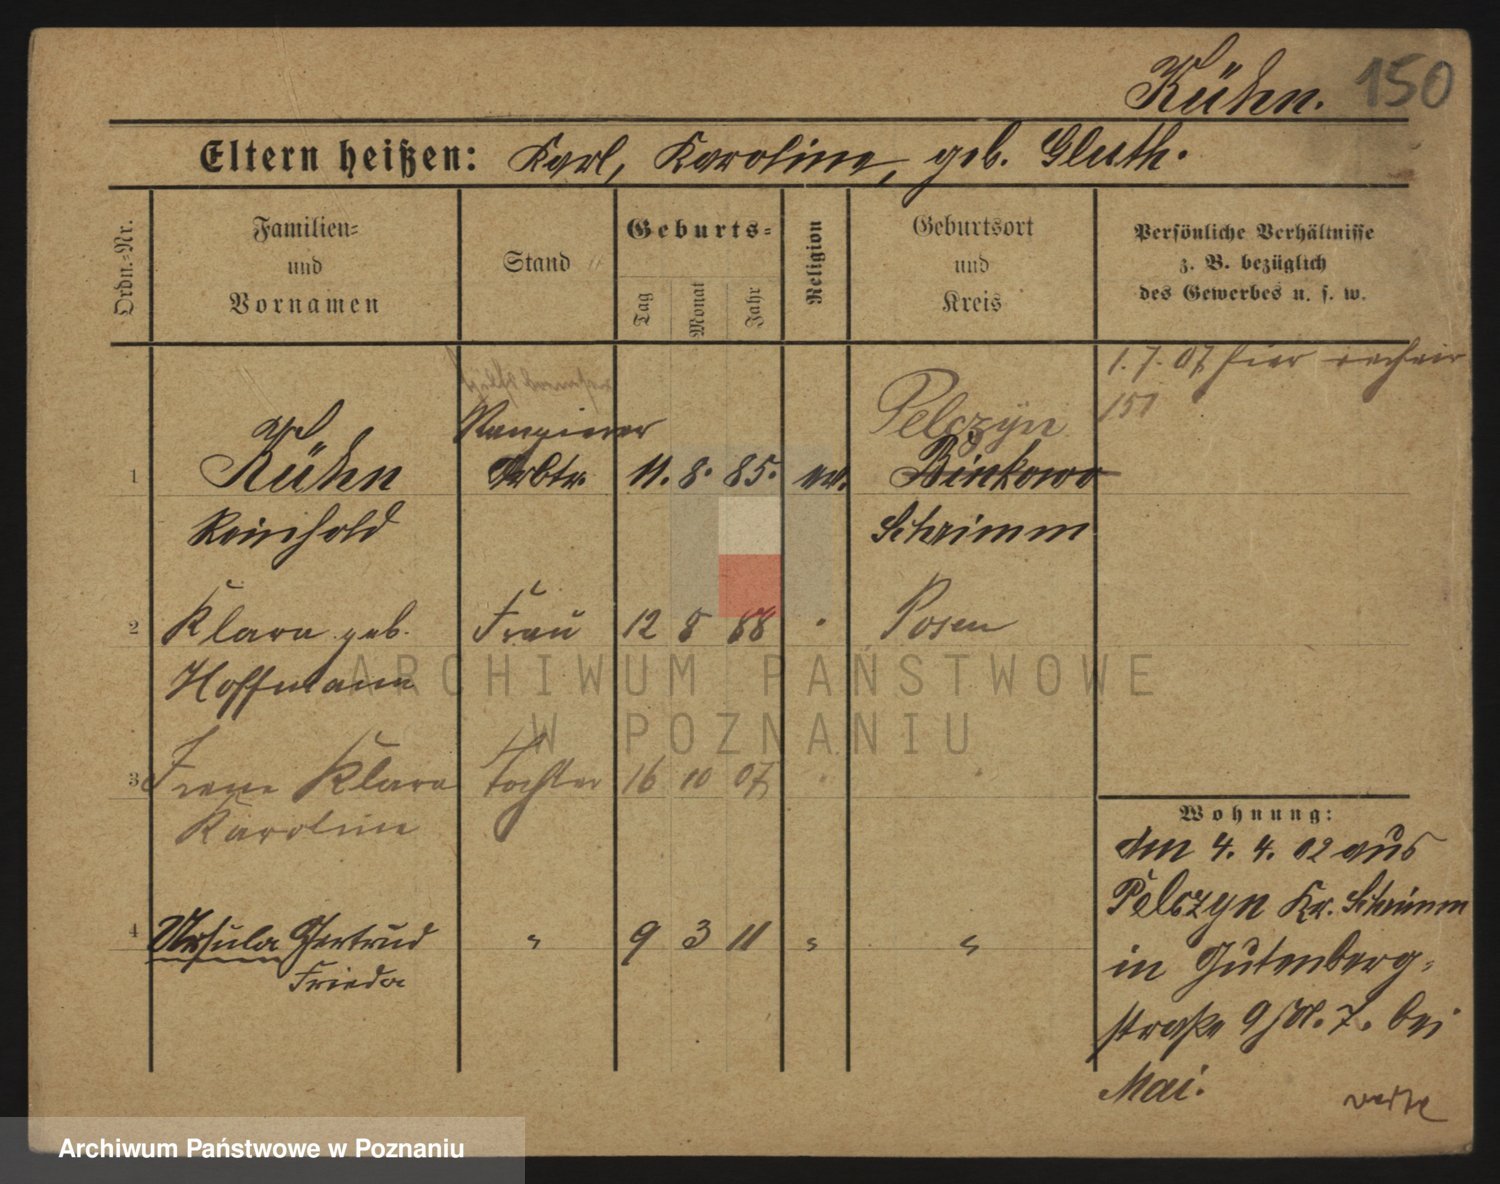 Kühn. 150
Eltern heißen: Karl, Karoline, geb. Gluth.
Ordn.=Nr.
Familien=
und
Vornamen
Stand
Geburts=
Tag
Monat
Jahr
Religion
Geburtsort
und
Kreis
Persönliche Verhältnisse
z. B. bezüglich
des Gewerbes u. s. w.
1. 7. 07 hier
151
Rangierer
Pelczyn
1 Kühn Arbtr. 11. 8. 85. ev. Binkowo
Reinhold Schrimm
2 Klara geb. Frau 12 8 88 " Posen
Hoffmann
3 Irene Klara Tochter 16 10 07 " "
Karoline
4 Ursula Gertrud " 9 3 11 " "
Frieda
Wohnung:
den 4. 4. 02 aus
Pelczyn Kr. Schrimm
in Gutenberg=
straße 9 bei
Mai.
ARCHIWUM PAŃSTWOWE
W POZNANIU
Archiwum Państwowe w Poznaniu